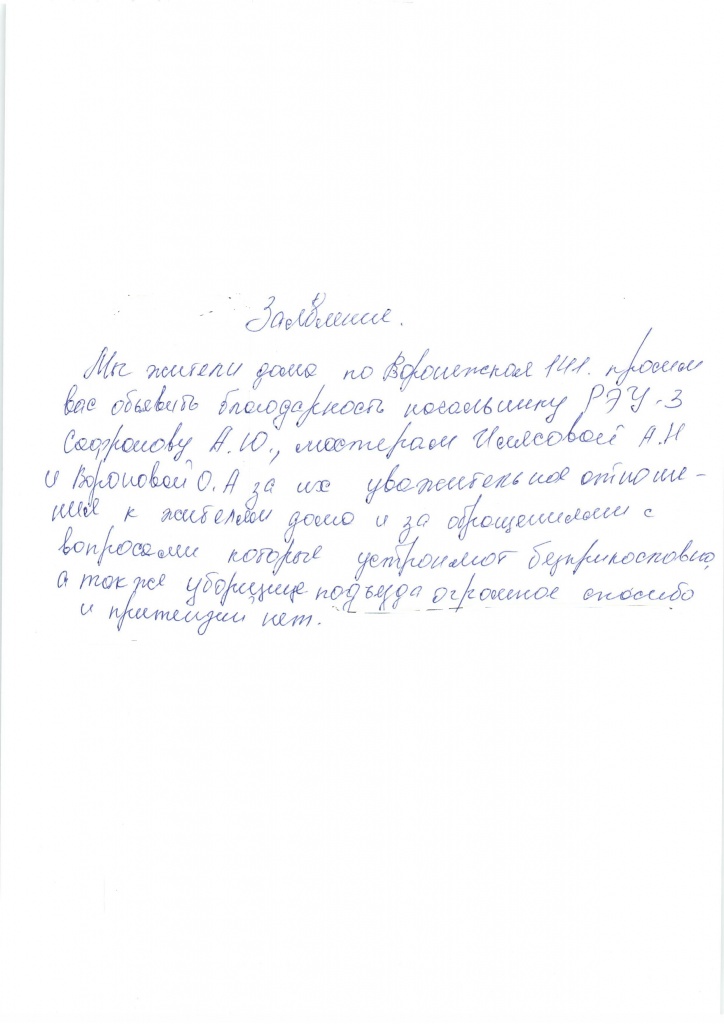 Заявление.
Мы жители дома по Воронежская 141. просим
вас объявить благодарность начальнику РЭУ-3
Сафронову А.Ю., мастерам Илясовой А.Н
и Вороновой О.А за их уважительное отноше-
ния к жителям дома и за обращениями с
вопросами которые устраняют безприкословно,
а так же уборщице подъезда огромное спасибо
и притензий нет.